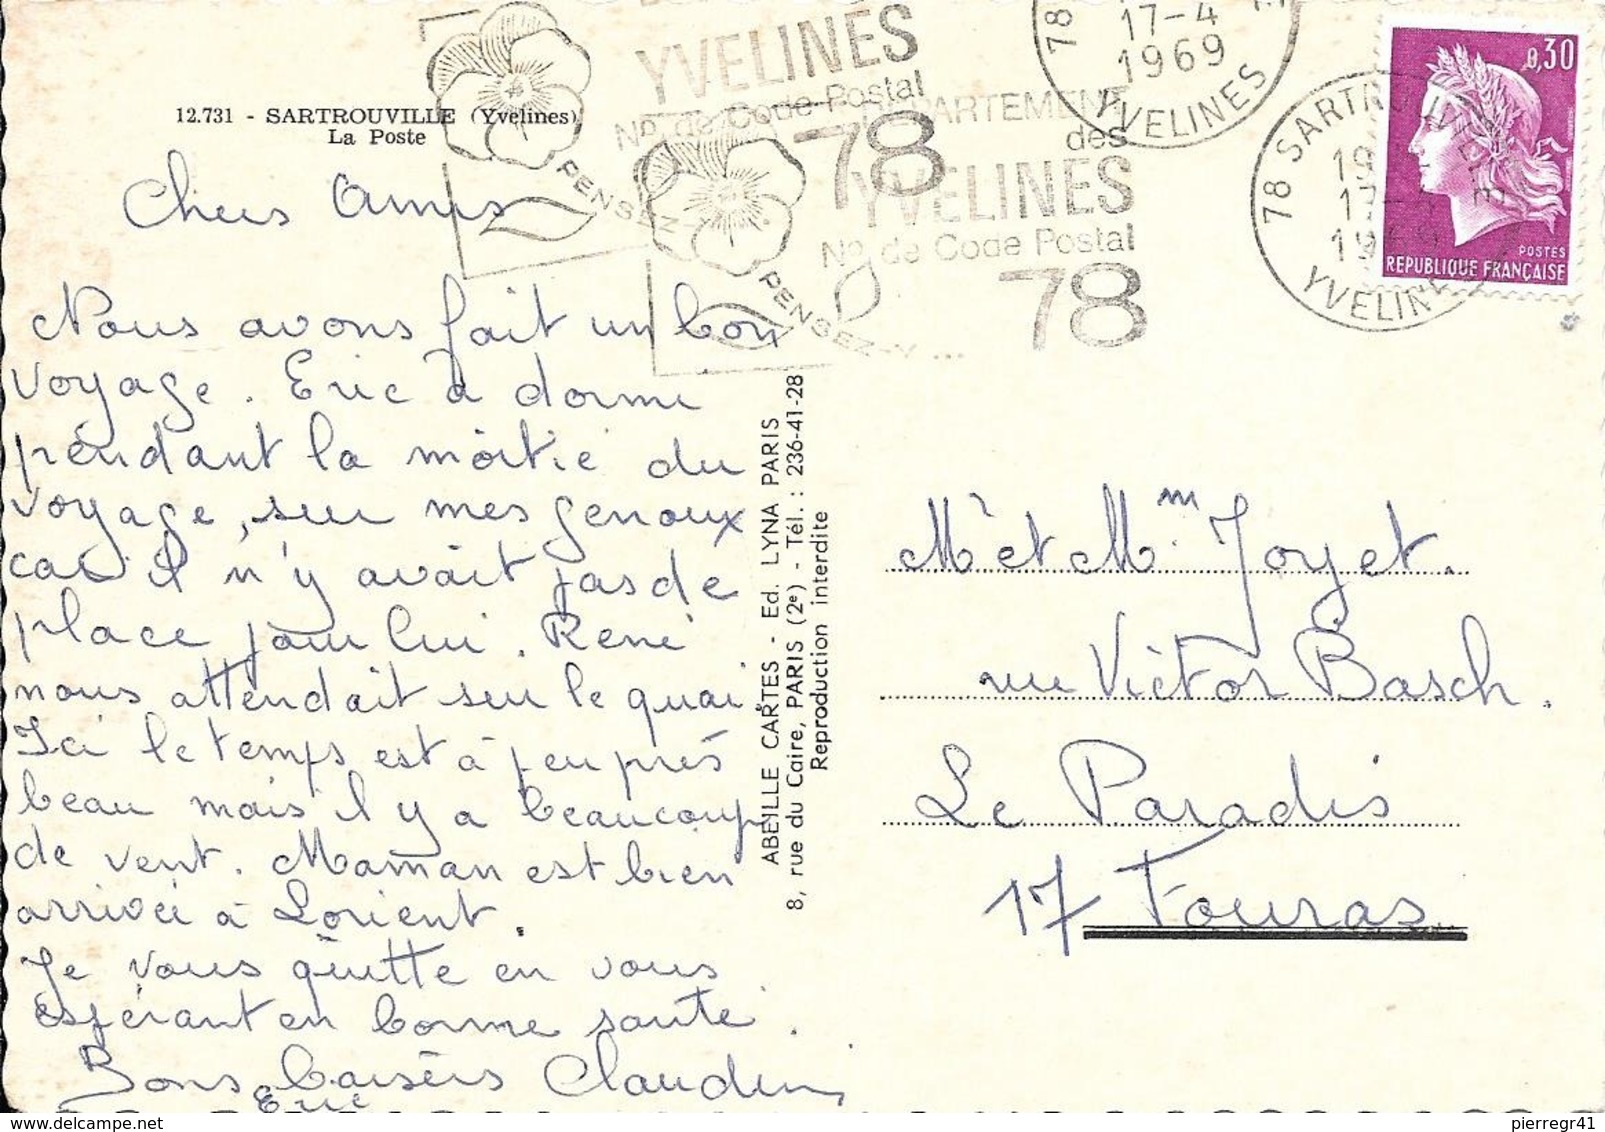 12.731 - SARTROUVILLE (Yvelines)
La Poste
YVELINES
No de Code Postal
78
PENSEZ
DÉPARTEMENT
des
YVELINES
No de Code Postal
78
PENSEZ-Y ...
17-4
1969
78
YVELINES
78 SARTROUVILLE
YVELINES
0,30
POSTES
REPUBLIQUE FRANÇAISE
Chers Amis
Nous avons fait un bon
voyage. Eric à dormi
pendant la moitié du
voyage, sur mes genoux
car il n'y avait pas de
place pour lui. René
nous attendait sur le quai.
Ici le temps est à peu près
beau mais il y a beaucoup
de vent. Maman est bien
arrivée à Lorient.
Je vous quitte en vous
espérant en bonne santé.
Bons baisers Claudine
Eric
ABEILLE CARTES - Ed. LYNA PARIS
8, rue du Caire, PARIS (2e) - Tél. : 236-41-28
Reproduction interdite
Mr et Mm Joyet.
rue Victor Basch.
Le Paradis
17 Fouras
pierregr41